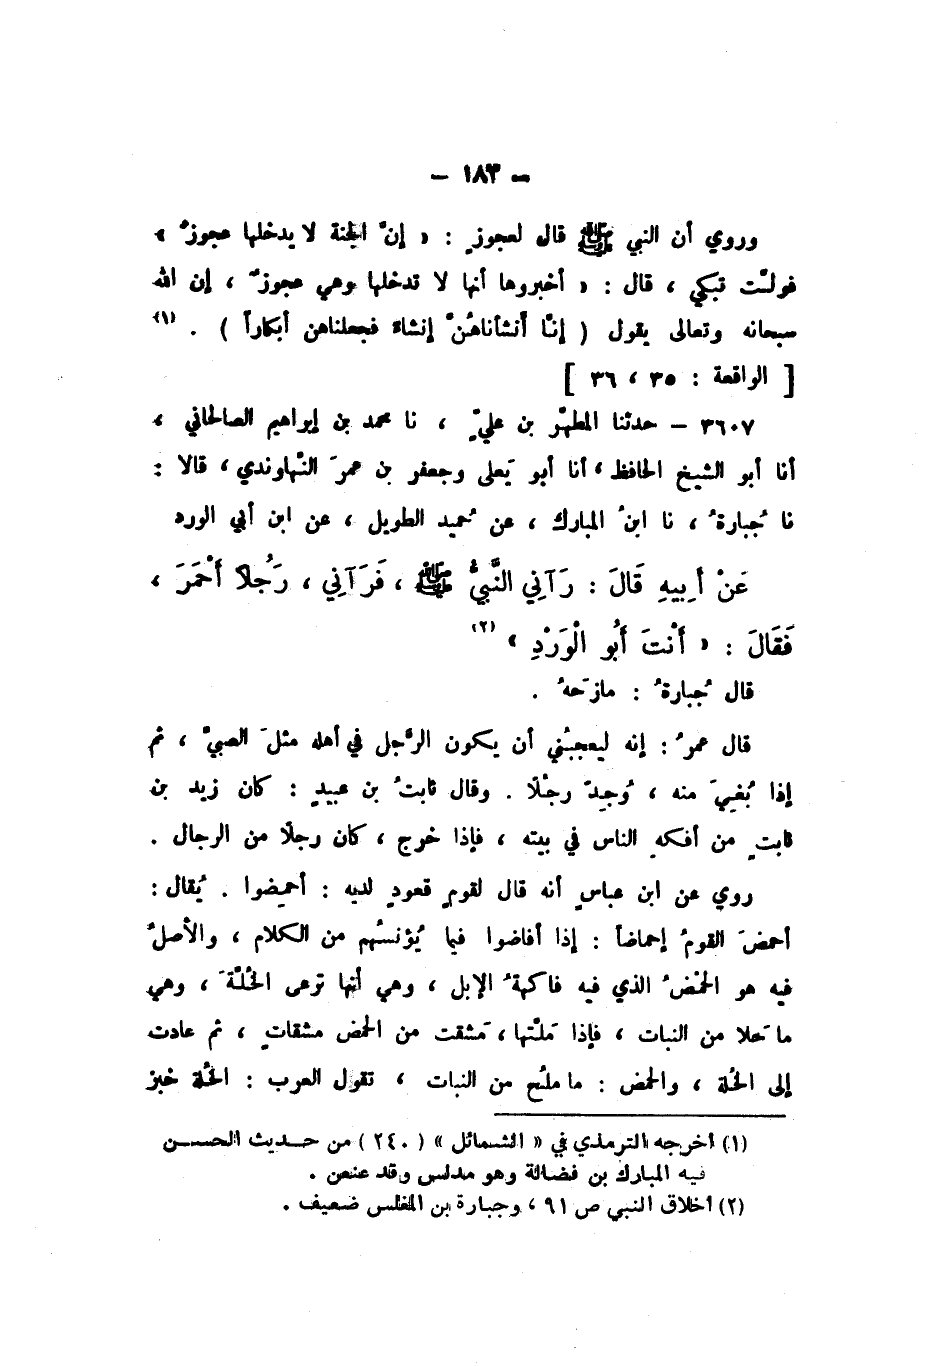 – ١٨٣ –
وروي أن النبي ﷺ قال لعجوزٍ : « إنَّ الجنة لا يدخلها عجوزٌ »
فولَّت تبكي ، قال : « أخبروها أنها لا تدخلها وهي عجوزٌ ، إن الله
سبحانه وتعالى يقول ( إنَّا أنشأناهُنَّ إنشاءً فجعلناهن أبكاراً ) . (١)
[ الواقعة : ٣٥ ، ٣٦ ]
٣٦٠٧ – حدثنا المطهَّر بن عليٍّ ، نا محمد بن إبراهيم الصالحاني ،
أنا أبو الشيخ الحافظ ، أنا أبو يَعلى وجعفر بن عمرَ النَّهاوندي ، قالا :
نا جُبارةُ ، نا ابنُ المبارك ، عن حُميد الطويل ، عن ابن أبي الورد
عَنْ أَبِيهِ قَالَ : رَآنِي النَّبِيُّ ﷺ ، فَرَآنِي ، رَجُلاً أَحْمَرَ ،
فَقَالَ : « أَنْتَ أَبُو الْوَرْدِ » (٢)
قال جُبارةُ : مازَحهُ .
قال عمرُ : إنه ليعجبُني أن يكون الرَّجل في أهله مثلَ الصبيِّ ، ثم
إذا بُغيَ منه ، وُجِدَ رجُلًا . وقال ثابتُ بن عبيدٍ : كان زيد بن
ثابتٍ من أفكهِ الناس في بيته ، فإذا خرج ، كان رجلًا من الرجال .
روي عن ابن عباسٍ أنه قال لقومٍ قعودٍ لديه : أحمِضوا . يُقال :
أحمضَ القومُ إحماضاً : إذا أفاضوا فيما يُؤنسُهم من الكلام ، والأصلُ
فيه هو الحمْضُ الذي فيه فاكهةُ الإبل ، وهي أنها ترعى الخُلَّةَ ، وهي
ما حَلا من النبات ، فإذا مَلَّتها ، مَشقت من الحمض مشقاتٍ ، ثم عادت
إلى الخُلة ، والحمض : ما ملُح من النبات ، تقول العرب : الخُلة خبز
(١) أخرجه الترمذي في « الشمائل » ( ٢٤٠ ) من حديث الحسن
فيه المبارك بن فضالة وهو مدلس وقد عنعن .
(٢) أخلاق النبي ص ٩١ ، وجبارة بن المغلس ضعيف .